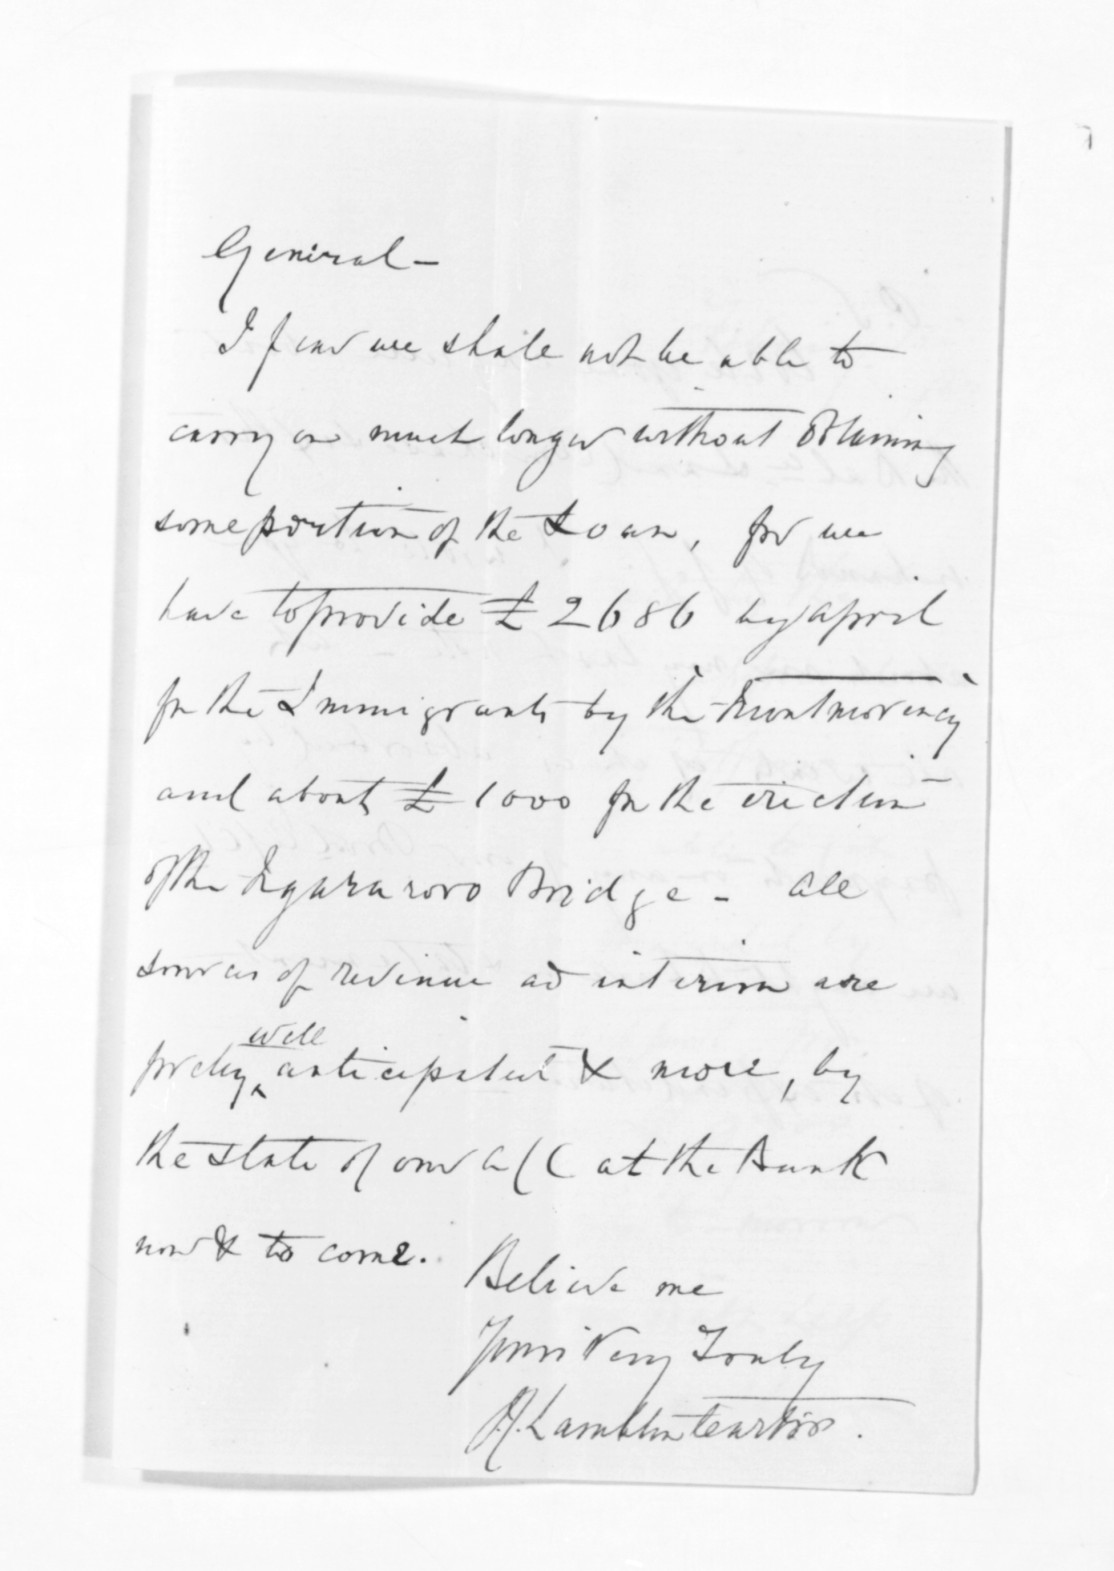 General -
I fear we shall not be able to
carry on much longer without obtaining
some portion of the Loan, for we
have to provide £2686 by April
for the Immigrants by the Montmorency
and about £1000 for the erection
of the Ngaruroro Bridge - All
sources of revenue ad interim are
pretty well anticipated & more, by
the state of our a/c at the Bank
now & to come.
Believe me
Yours Very Truly